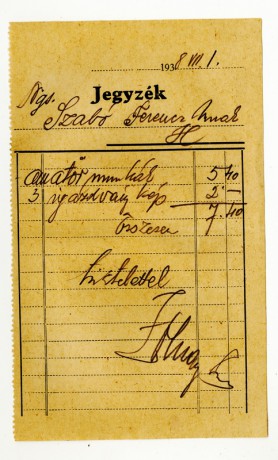 1938 VIII. 1.
Jegyzék
Ngs. Szabó Ferenc Urnak
H
amatőr munkák 5 40
3 igazolvány kép 2 —
Összesen 7.40
tisztelettel